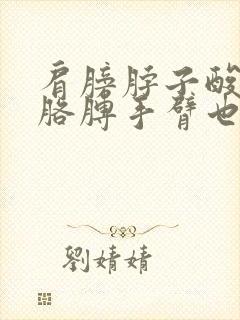 肩膀脖子酸
胳膊手臂也
劉婧婧